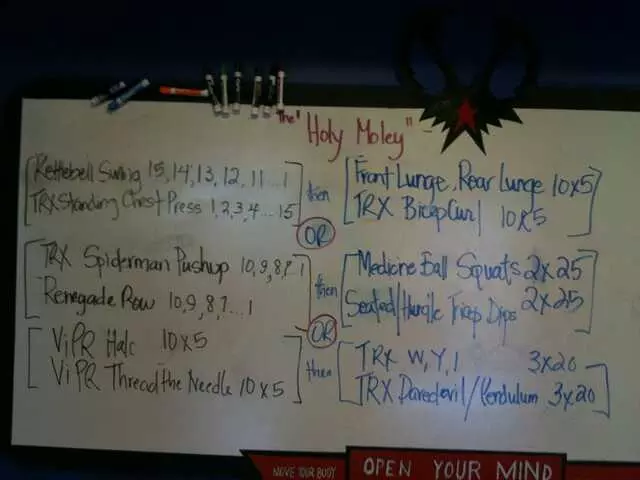 The "Holy Moley" -
Kettlebell Swing 15, 14, 13, 12, 11 ... 1
TRX Standing Chest Press 1, 2, 3, 4 ... 15
then
Front Lunge, Rear Lunge 10x5
TRX Bicep Curl 10x5
OR
TRX Spiderman Pushup 10, 9, 8, 7 1
Renegade Row 10, 9, 8, 7 ... 1
then
Medicine Ball Squats 2x25
Seated/Hurdle Tricep Dips 2x25
OR
ViPR Halo 10x5
ViPR Thread the Needle 10x5
then
TRX W, Y, I 3x20
TRX Daredevil/Pendulum 3x20
MOVE YOUR BODY
OPEN YOUR MIND